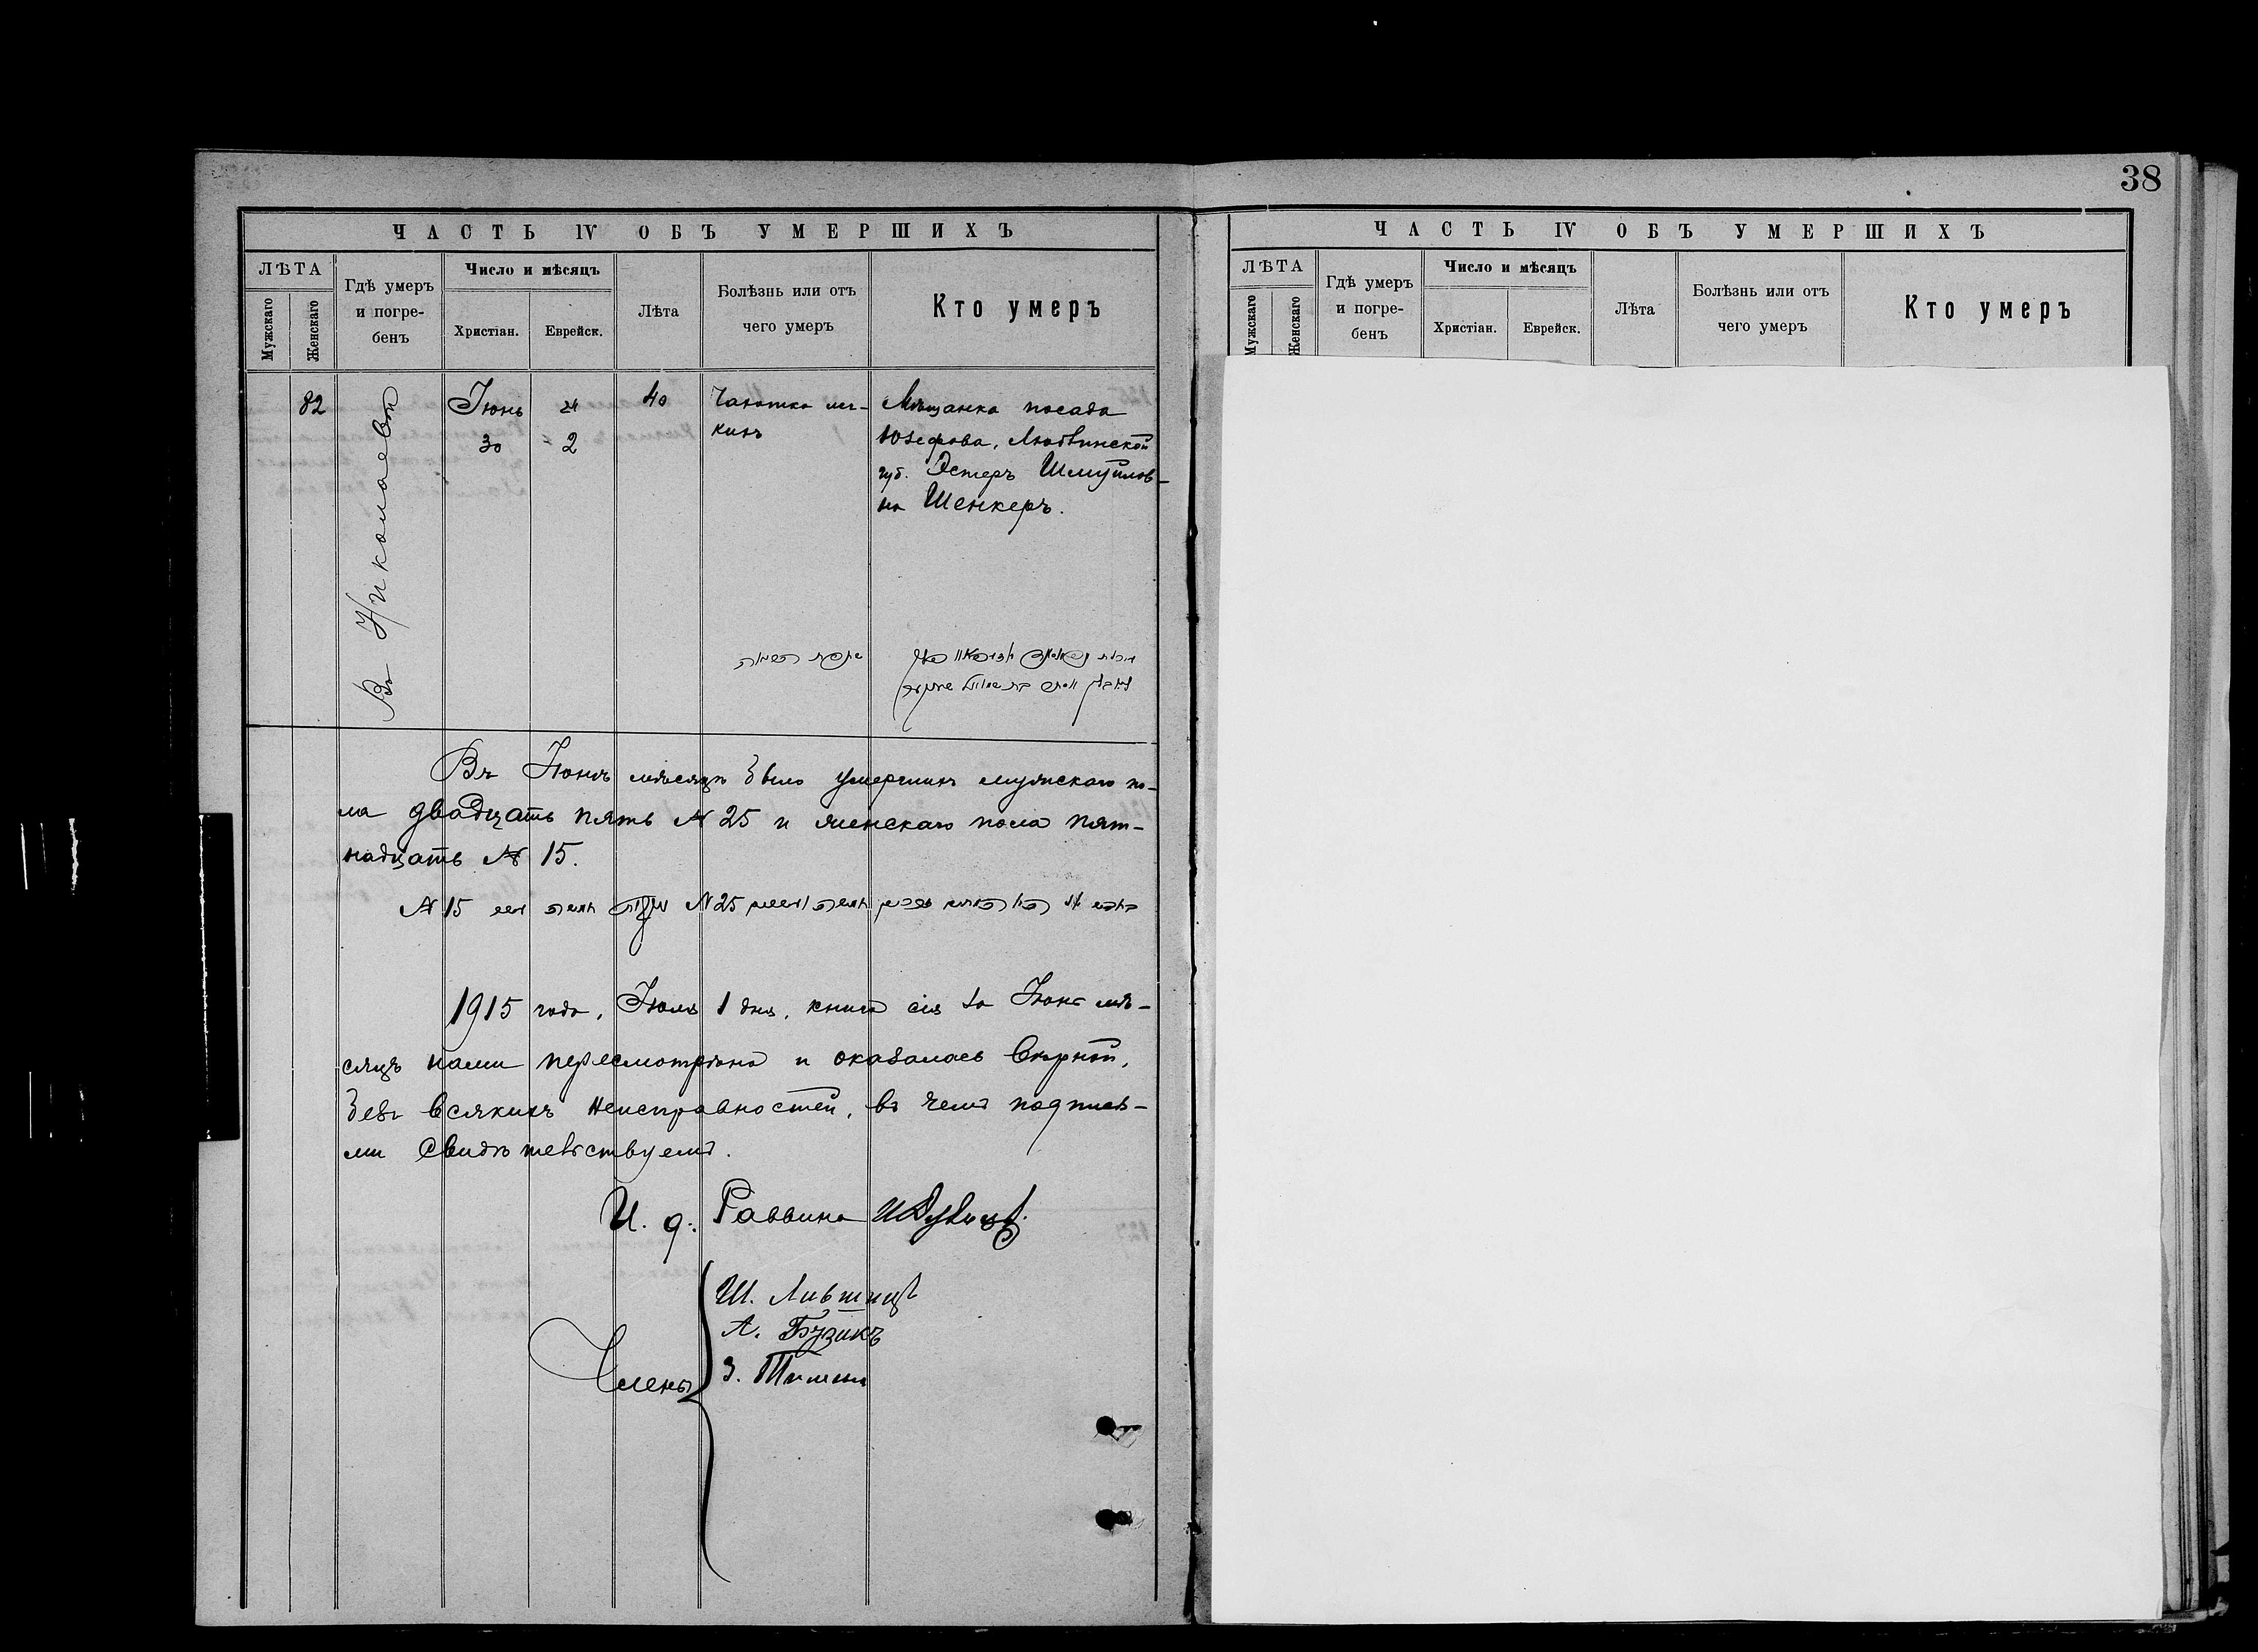 38
ЧАСТЬ IV ОБЪ УМЕРШИХЪ
ЛѢТА
Мужскаго
Женскаго
Гдѣ умеръ
и погре-
бенъ
Число и мѣсяцъ
Христіан.
Еврейск.
Лѣта
Болѣзнь или отъ
чего умеръ
Кто умеръ
82
Въ Николаевѣ
Іюнь
30
2
40
Чахотка лег-
кихъ
Мѣщанка посада
Юзефова, Люблинской
губ. Эстеръ Шмуйлов-
на Шенкеръ.
Въ Іюнѣ мѣсяцѣ было умершихъ мужскаго по-
ла двадцать пять № 25 и женскаго пола пят-
надцать № 15.
№ 15 № 25
1915 года, Іюля 1 дня, книга сія за Іюнь мѣ-
сяцъ нами пересмотрѣна и оказалась вѣрной,
безъ всякихъ неисправностей, въ чемъ подпися-
ми свидѣтельствуемъ.
И. д. Раввина
Члены
Ш. Лившицъ
А. Бузикъ
З.
ЧАСТЬ IV ОБЪ УМЕРШИХЪ
ЛѢТА
Мужскаго
Женскаго
Гдѣ умеръ
и погре-
бенъ
Число и мѣсяцъ
Христіан.
Еврейск.
Лѣта
Болѣзнь или отъ
чего умеръ
Кто умеръ